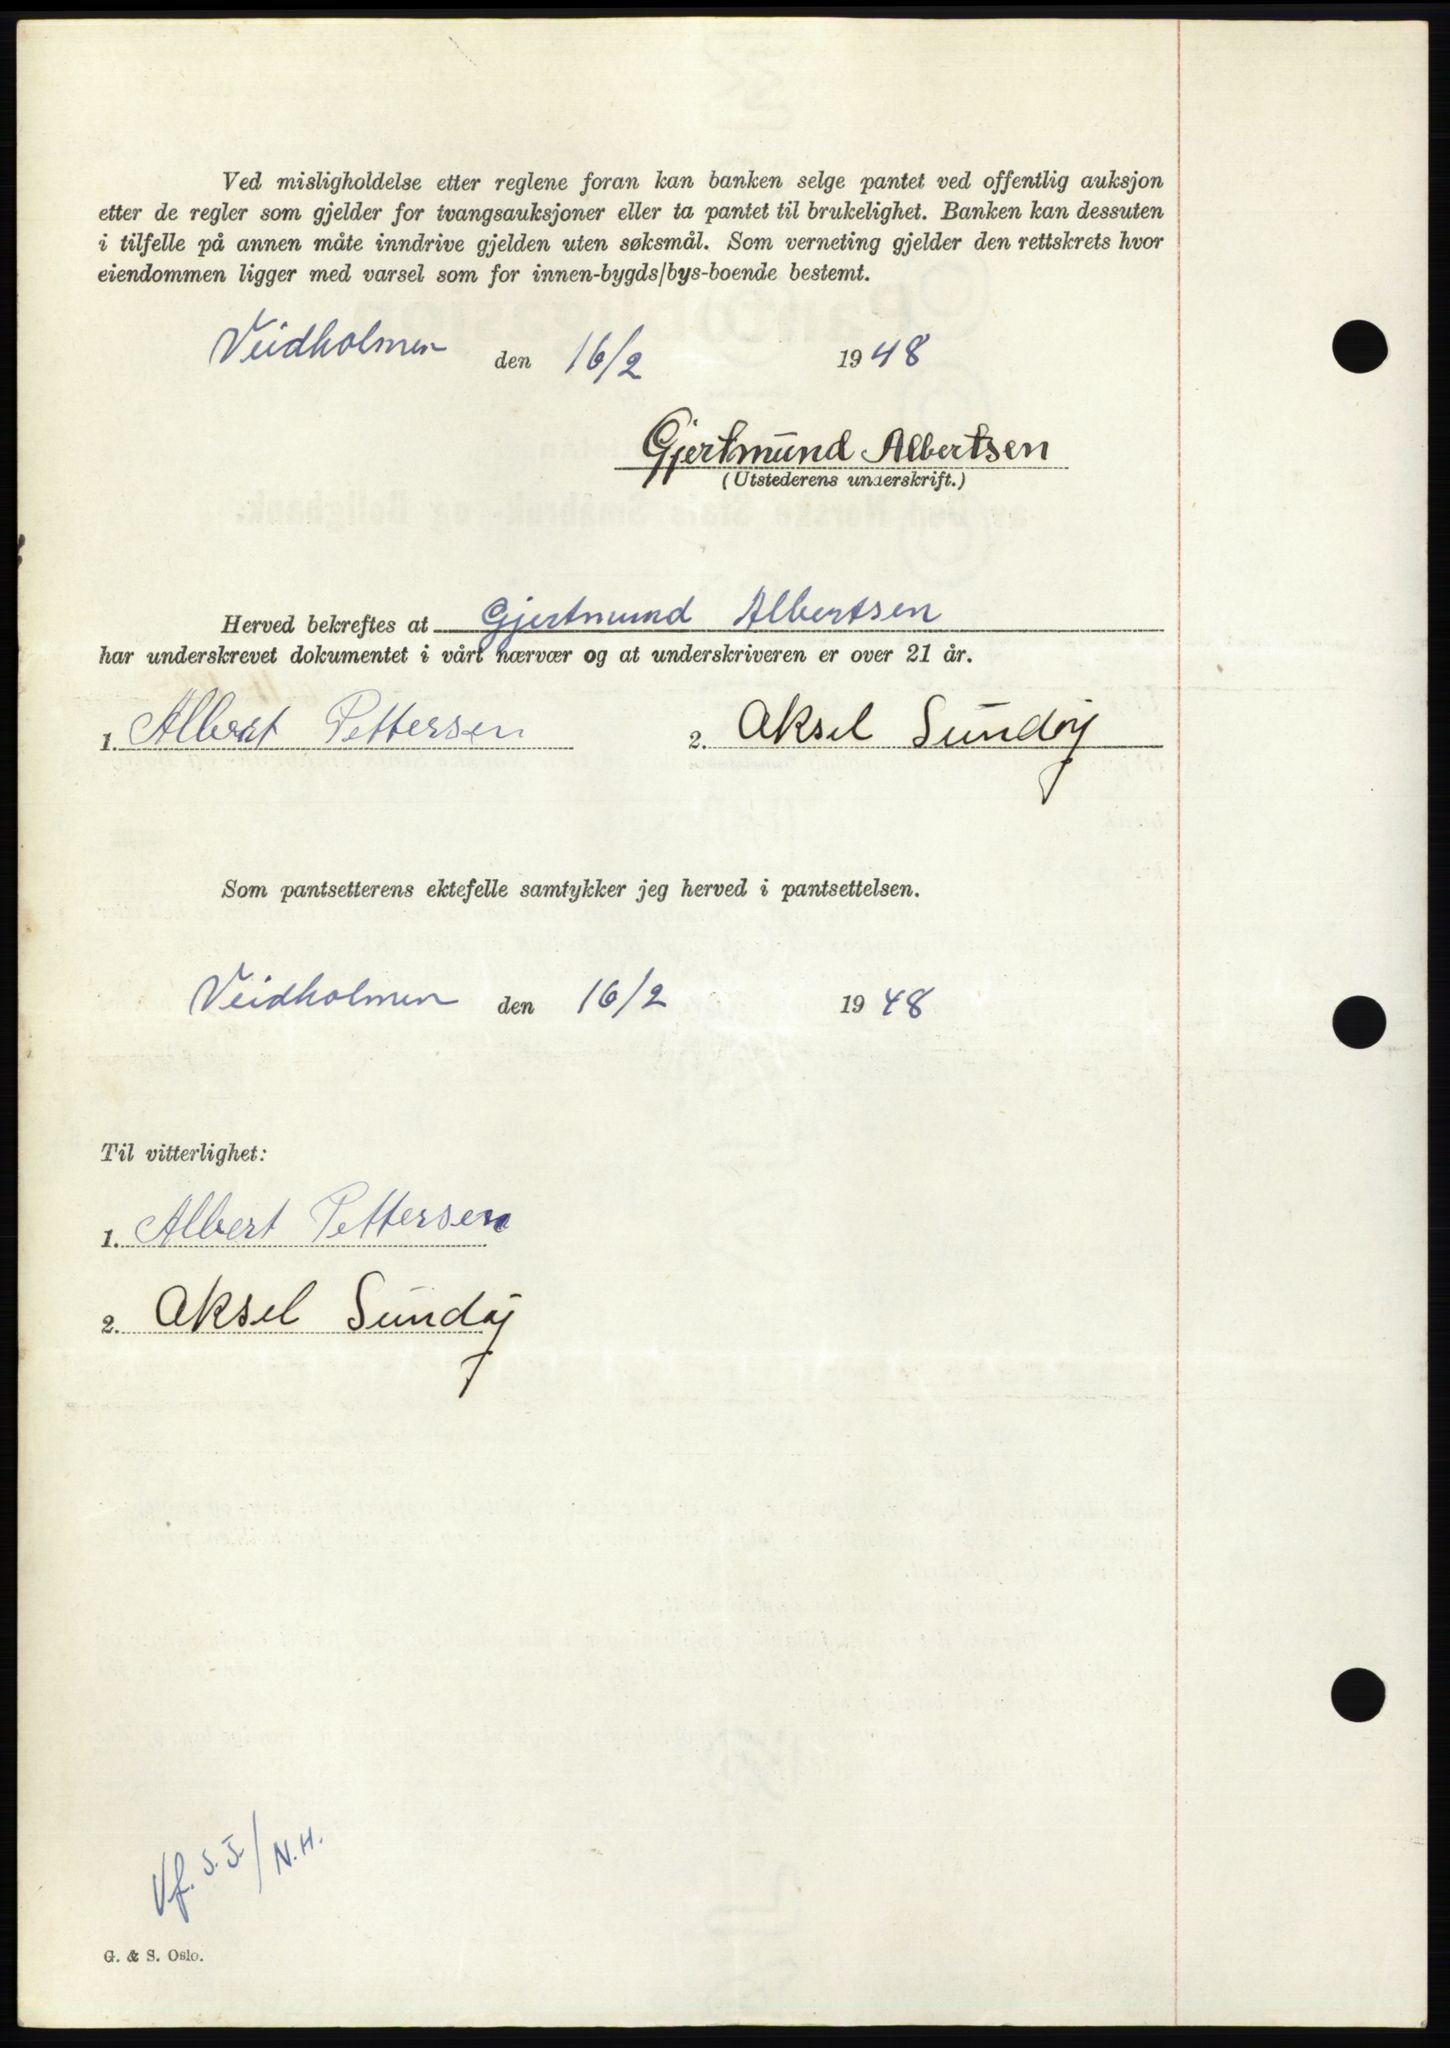 Ved misligholdelse etter reglene foran kan banken selge pantet ved offentlig auksjon
etter de regler som gjelder for tvangsauksjoner eller ta pantet til brukelighet. Banken kan dessuten
i tilfelle på annen måte inndrive gjelden uten søksmål. Som verneting gjelder den rettskrets hvor
eiendommen ligger med varsel som for innen-bygds/bys-boende bestemt.
Veidholmen den 16/2 1948
Gjertmund Albertsen
(Utstederens underskrift.)
Herved bekreftes at Gjertmund Albertsen
har underskrevet dokumentet i vårt nærvær og at underskriveren er over 21 år.
1. Albert Pettersen 2. Aksel Sundøy
Som pantsetterens ektefelle samtykker jeg herved i pantsettelsen.
Veidholmen den 16/2 1948
Til vitterlighet:
1. Albert Pettersen
2. Aksel Sundøy
Vf. S.J./N.H.
G. & S. Oslo.